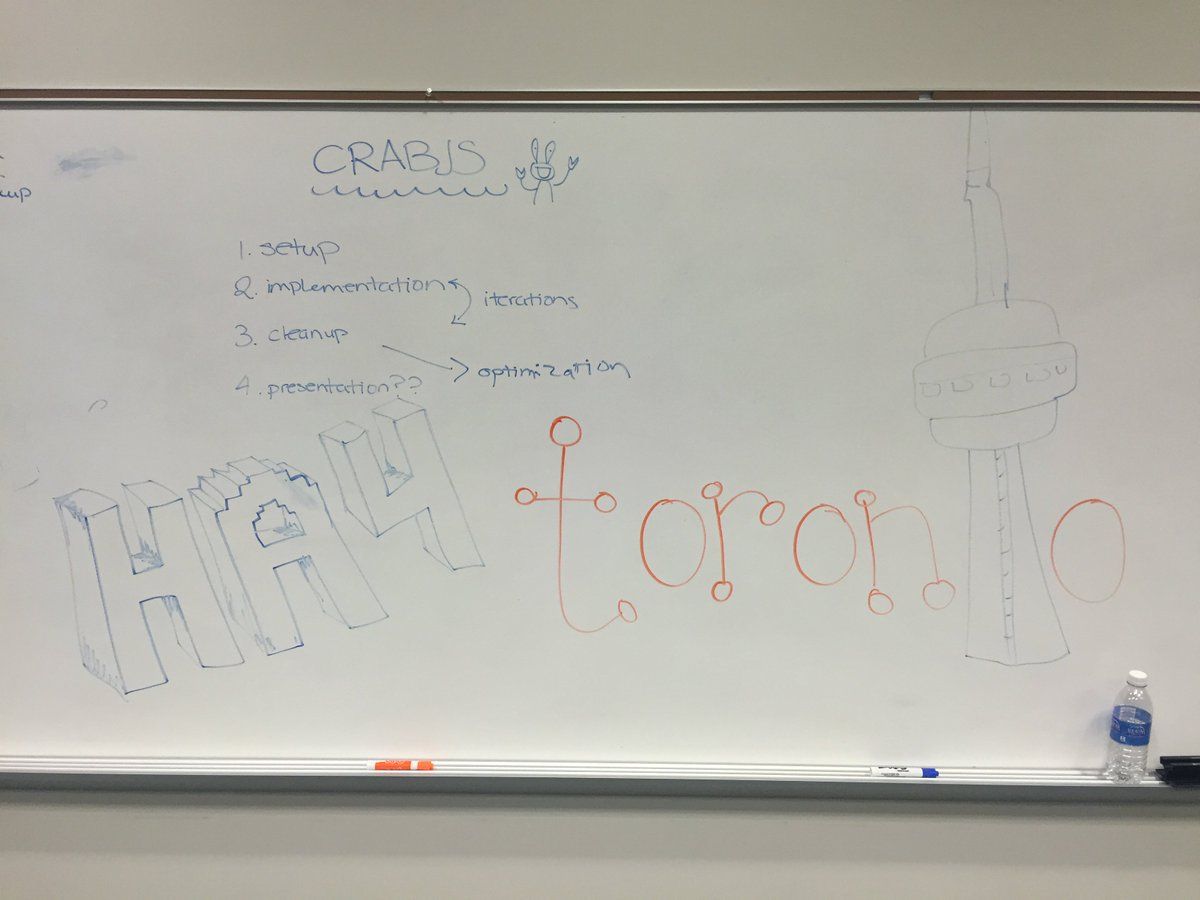 CRABJS
1. setup
2. implementation
iterations
3. cleanup
optimization
4. presentation??
HA4
toronto